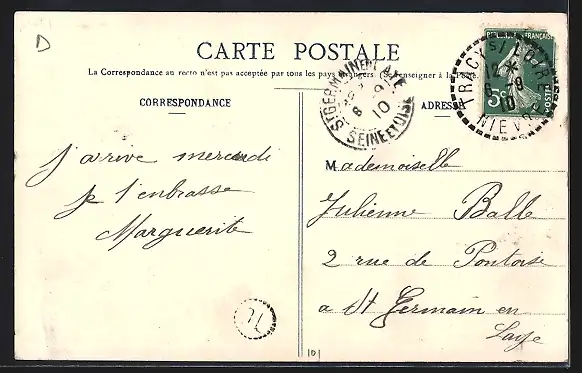 D
CARTE POSTALE
La Correspondance au recto n'est pas acceptée par tous les pays étrangers. (Se renseigner à la Poste.)
CORRESPONDANCE
ADRESSE
REPUBLIQUE FRANÇAISE
5c
POSTES
TRACY S/ LOIRE
NIEVRE
ST GERMAIN EN LAYE
SEINE ET OISE
8
10
j'arrive mercredi
je t'embrasse
Marguerite
Mademoiselle
Julienne Balle
2 rue de Pontoise
a St Germain en
Laye
101